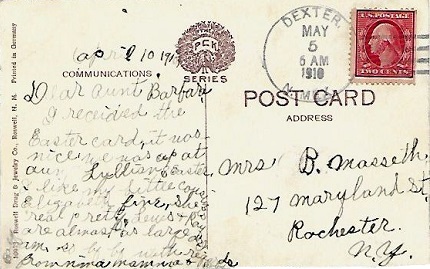 april 10 191
COMMUNICATIONS
THE
PCK
SERIES
DEXTER
MAY
5
6 AM
1910
N. MEX.
U.S. POSTAGE
TWO CENTS
POST CARD
ADDRESS
Dear Aunt Barbara
I received the
Easter card, it was
nice, was up at
aunt Lillian Easter
I like my little cousin
Elizabeth fine, she
real pretty, Lewis &
are almost as large
as
mamma &
Mrs B. Masseth,
127 Maryland St.
Rochester.
N.Y.
Roswell Drug & Jewelry Co., Roswell, N. M. Printed in Germany